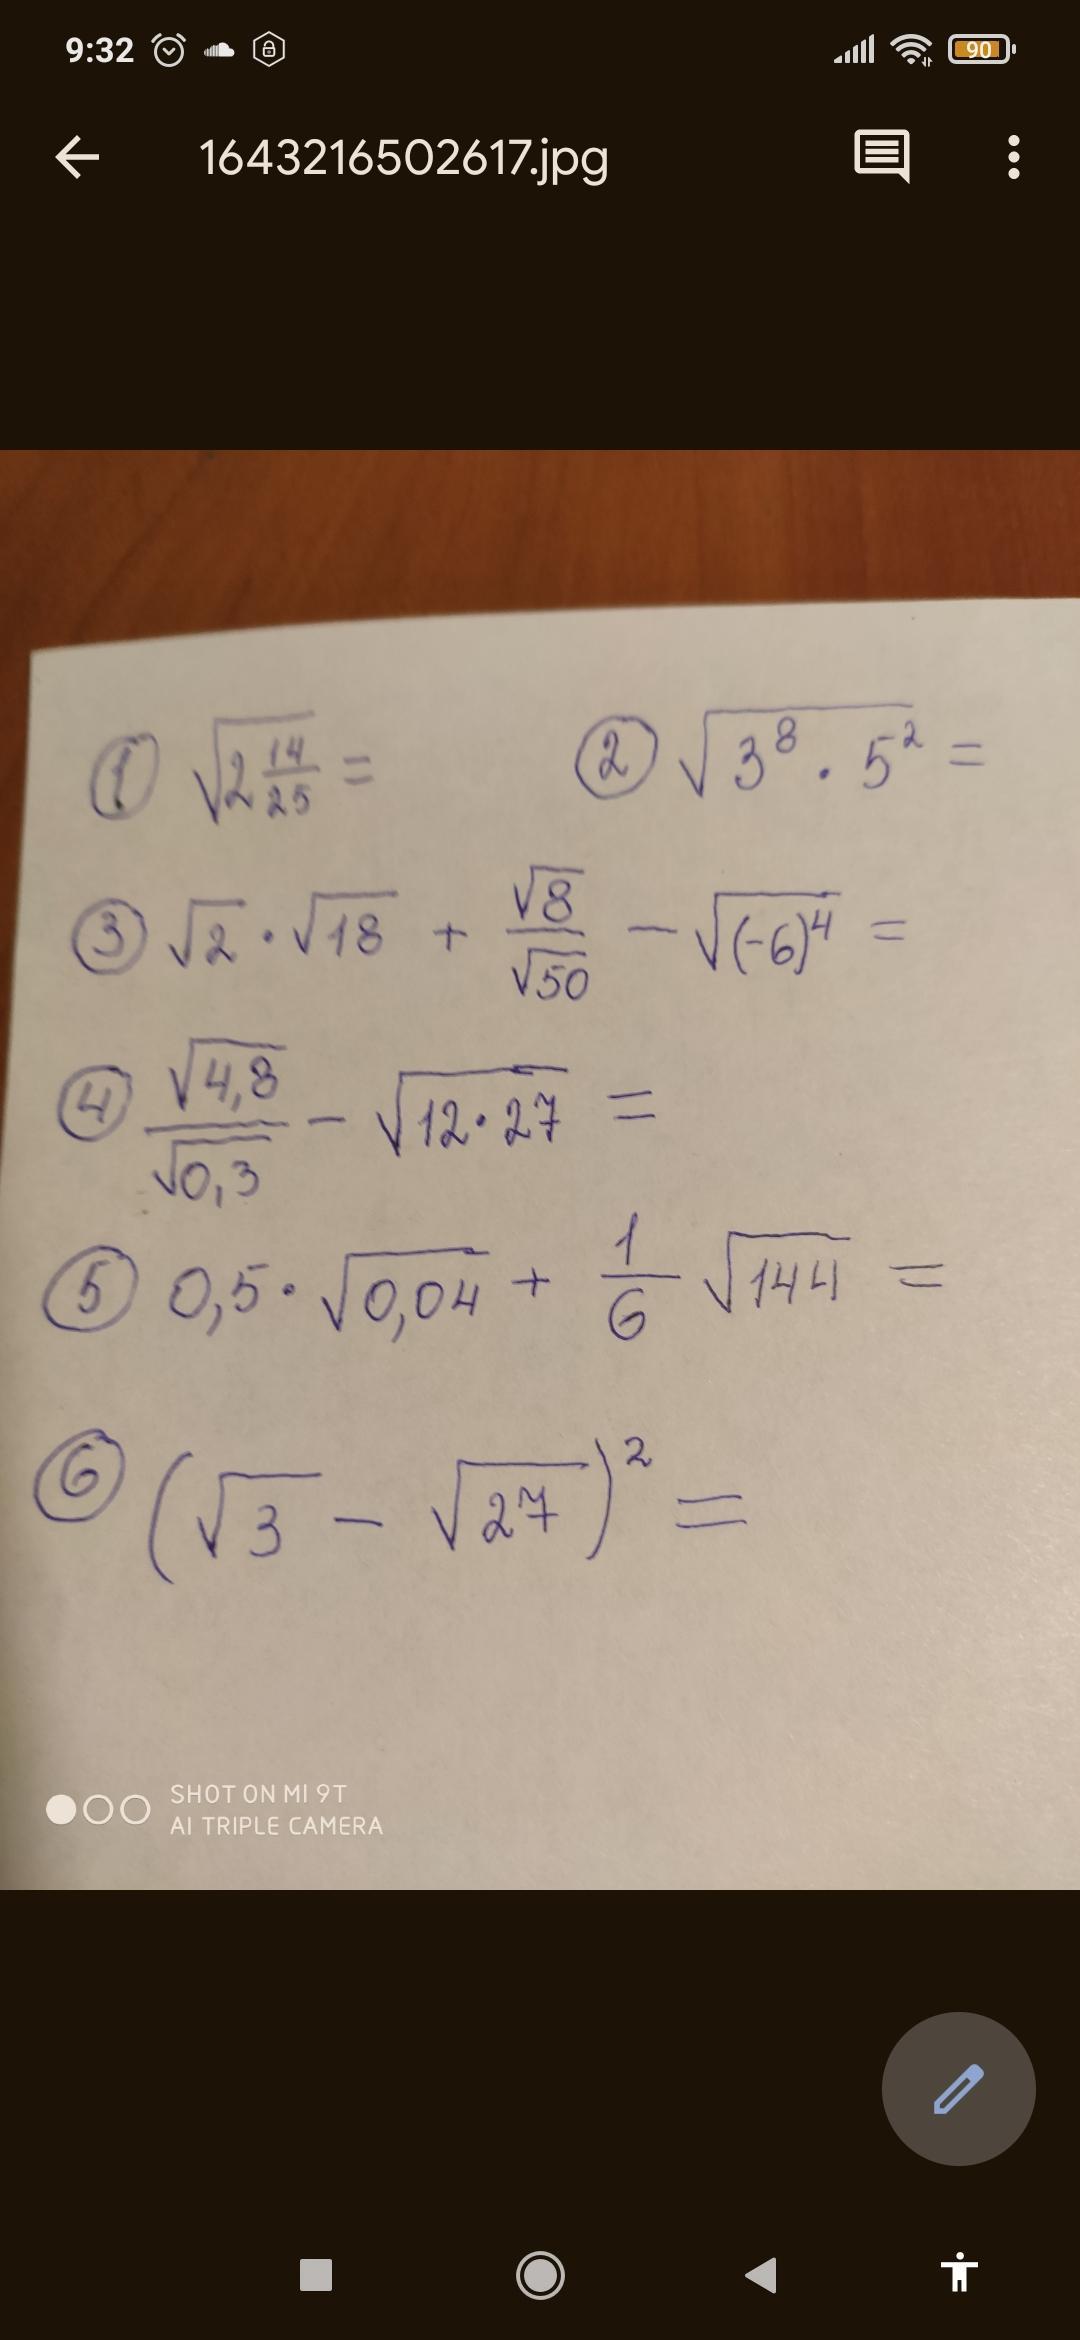 9:32 90
1643216502617.jpg
① √(2 14/25) = ② √(3⁸ · 5²) =
③ √2 · √18 + √8/√50 − √((-6)⁴) =
④ √4,8/√0,3 − √(12·27) =
⑤ 0,5 · √0,04 + 1/6 √144 =
⑥ (√3 − √27)² =
SHOT ON MI 9T
AI TRIPLE CAMERA